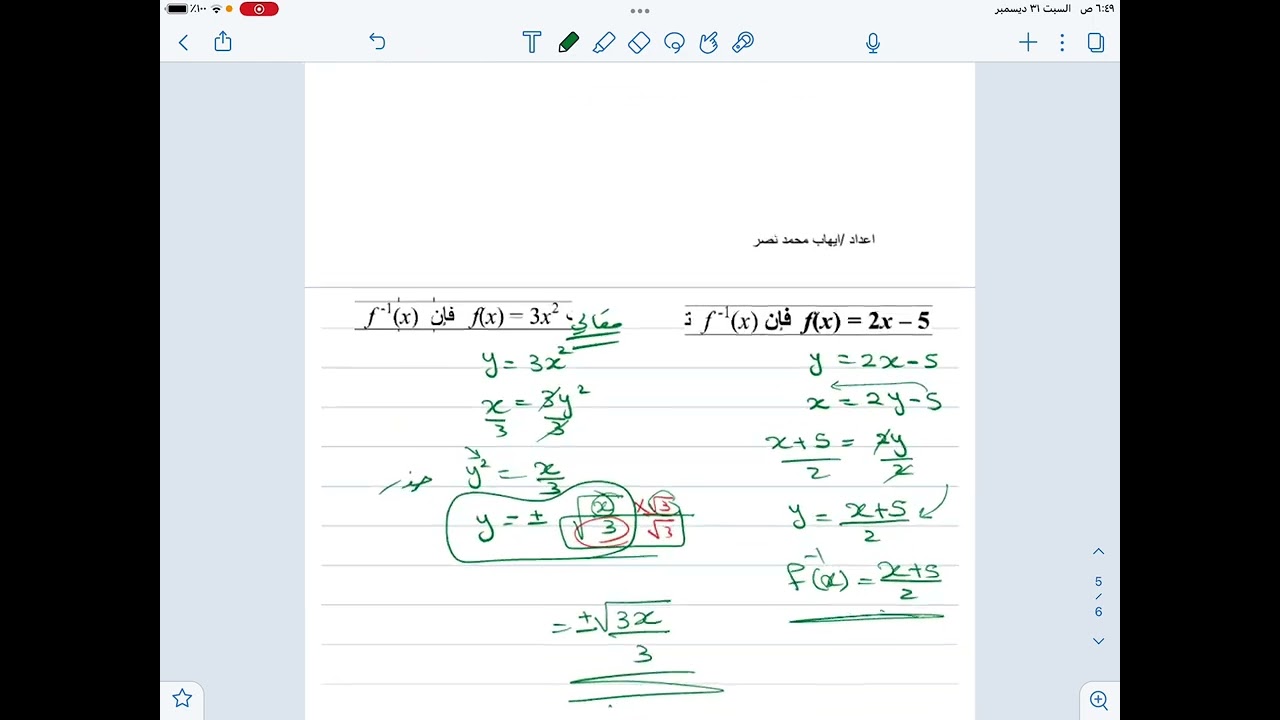 ٦:٤٩ ص السبت ٣١ ديسمبر
٪١٠٠
T
اعداد /ايهاب محمد نصر
f(x) = 2x – 5 فإن f⁻¹(x)
y = 2x - 5
x = 2y - 5
x + 5 / 2 = 2y / 2
y = x + 5 / 2
f⁻¹(x) = x + 5 / 2
f(x) = 3x² فإن f⁻¹(x)
y = 3x²
x / 3 = 3y² / 3
y² = x / 3
y = ± √x / √3 × √3 / √3
= ± √3x / 3
5
/
6